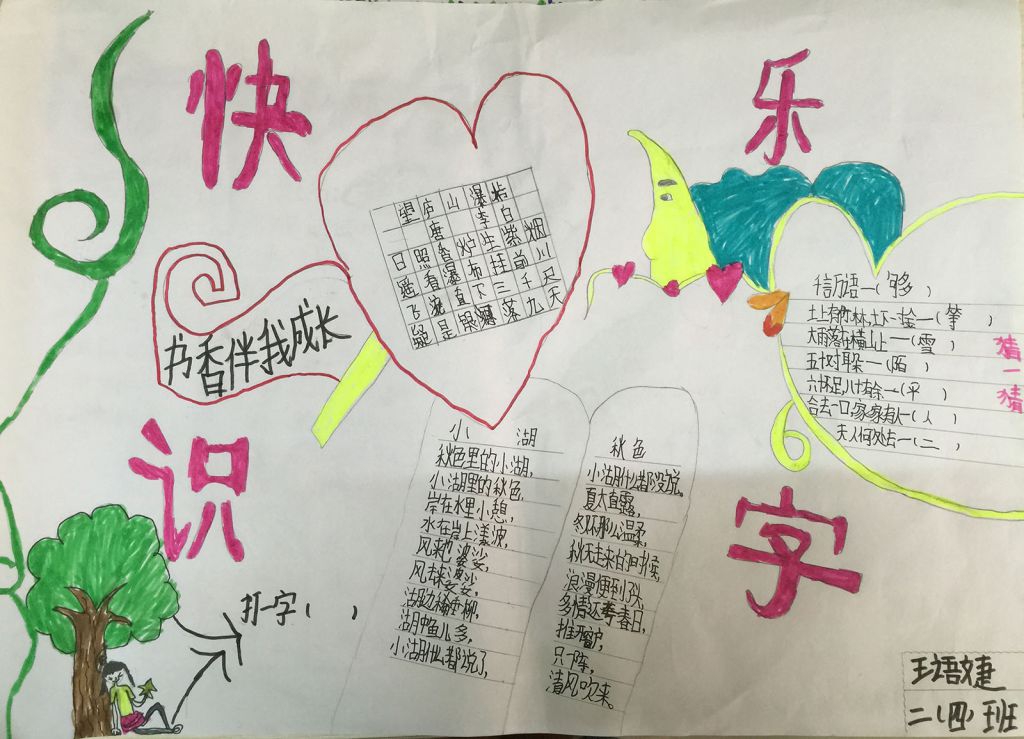 快
乐
识
字
书香伴我成长
望庐山瀑布
唐 李白
日照香炉生紫烟
遥看瀑布挂前川
飞流直下三千尺
疑是银河落九天
小 湖
秋色里的小湖,
小湖里的秋色,
岸在水里小憩,
水在岸上漾波,
风来婆娑,
风去婆娑,
湖边垂柳,
湖中鱼儿多,
小湖什么都说了,
秋色
小湖什么都没说。
夏太直露,
冬不那么温柔,
秋天走来的时候,
浪漫便到头,
多情还季春日,
推开窗户,
只一阵,
清风吹来。
千言万语一(够 )
土上有竹林,土下一寸金一(等 )
大雨落在横山上一(雪 )
五十对耳朵一(陌 )
六十不足,八十有余一(平 )
合去一口,家家有一(人 )
天人何处去一(二 )
猜一猜
打一字( )
王语婕
二(四)班